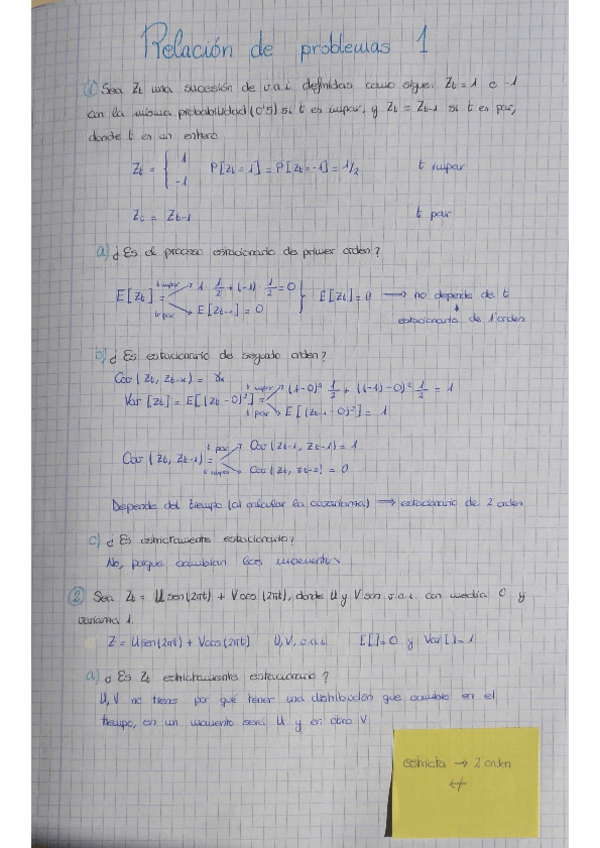 Relación de problemas 1
① Sea Zt una sucesión de v.a.i. definidas como sigue: Zt = 1 o -1
con la misma probabilidad (0'5) si t es impar, y Zt = Zt-1 si t es par,
donde t es un entero
Zt = { 1 -1 P[Zt = 1] = P[Zt = -1] = 1/2 t impar
Zt = Zt-1 t par
a) ¿Es el proceso estacionario de primer orden?
t impar 1 · 1/2 + (-1) · 1/2 = 0
E[Zt] = } E[Zt] = 0 → no depende de t
t par E[Zt-1] = 0
estacionario de 1º orden
b) ¿Es estacionario de segundo orden?
Cov(Zt, Zt-k) = γk
t impar (1-0)² 1/2 + ((-1)-0)² 1/2 = 1
Var[Zt] = E[(Zt-0)²] =
t par E[(Zt-1-0)²] = 1
t par Cov(Zt-1, Zt-1) = 1
Cov(Zt, Zt-1) =
t impar Cov(Zt, Zt-2) = 0
Depende del tiempo (al calcular la covarianza) → estacionario de 2º orden
c) ¿Es estrictamente estacionario?
No, porque cambian los momentos
② Sea Zt = U sen(2πt) + V cos(2πt), donde U y V son v.a.i. con media 0 y
varianza 1.
Z = U sen(2πt) + V cos(2πt) U, V, v.a.i. E[ ] = 0 y Var[ ] = 1
a) ¿Es Zt estrictamente estacionario?
U, V no tienen por qué tener una distribución que cambie en el
tiempo, en un momento será U y en otro V.
estricta → 2 orden
↚